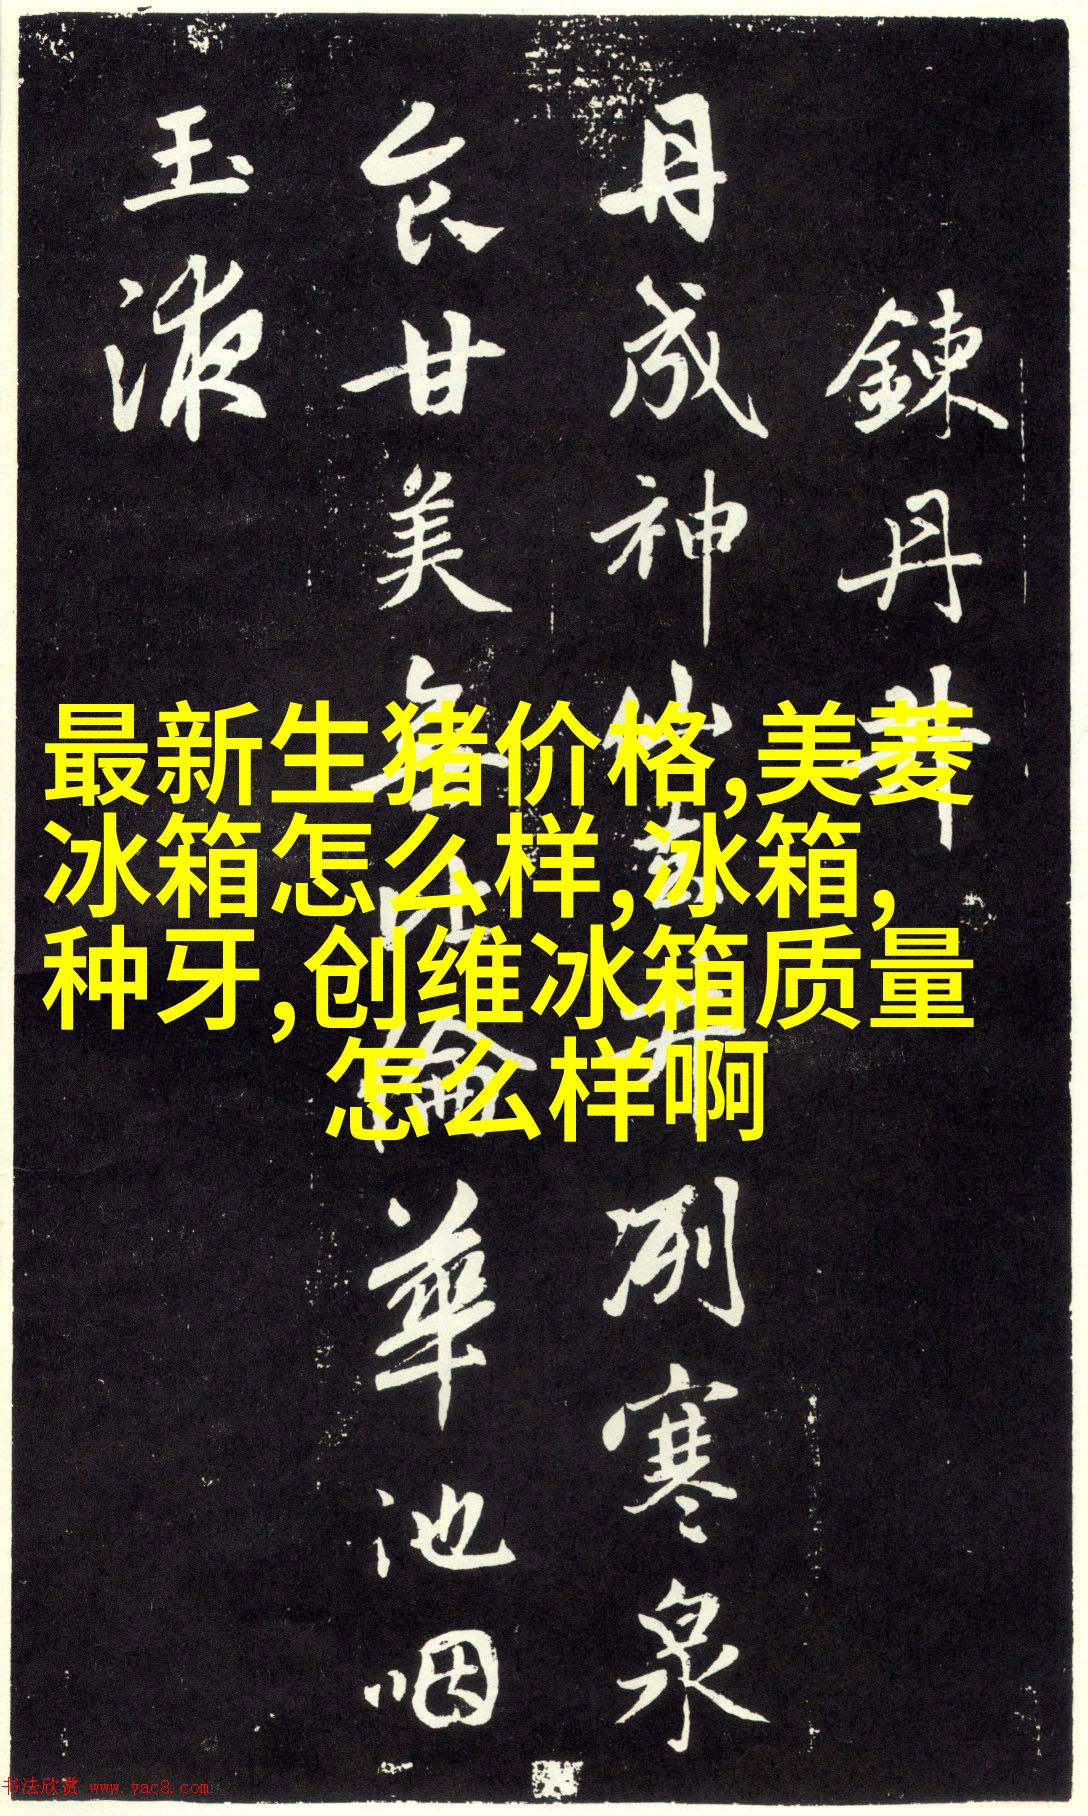 鍊丹井
丹成神仙去井冽寒泉
食甘美無比倫華池咽
玉液
最新生猪价格,美菱
冰箱怎么样,冰箱,
种牙,创维冰箱质量
怎么样啊
书法欣赏 www.yac8.com